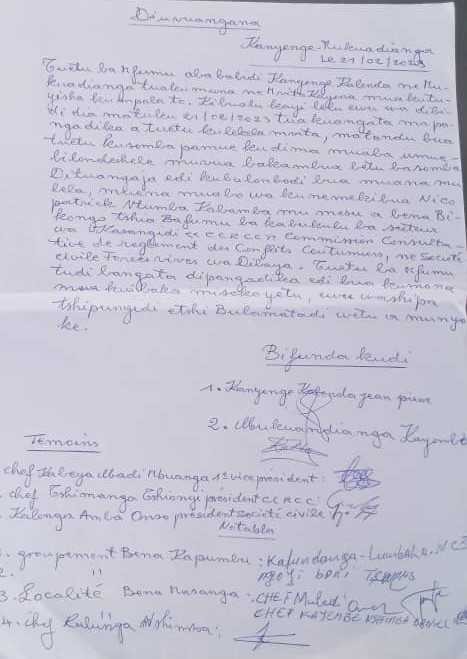 Diumvuangana
Kanyenge-Mukuadianga
Le 21/02/2023
Tuetu ba Mfumu aba babidi Kanyenge Kalenda ne Mu-
kuadianga tuaku muna ne Mvita Kayina mua kutu-
yisha ku mpala to. Kibualu kayi leku ewu wa dibi-
di dia matuku 21/02/2023 tua kuangata mu pa-
ngadika a tuetu ku lekela mvita, matandu bua
tuetu kusomba pamue ku dima muaba umue
bilondeshele muvua bakambua betu basomba
Dituangaja edi ku bulonbodi bua muana mu
lela, muena muabo wa kunemekibua Nico
patrick Ntumba Kabamba mu mesu a bena Bi-
kongo tshua Bafumu ba kabukulu ba secteur
wa Kasangidi << C C R C C >> Commission Consulta-
tive de reglement des Conflits Coutumiers, ne Societé
civile Forces vives wa Dibaya. Tuetu ba Mfumu
tudi bangata dipangadika edi bua kumona
mua kuibaka misoko yetu, ewu washipa
tshipungidi etshi Bulamatadi wetu a munyo
ke.
Bifunda kudi
1. Kanyenge Kalenda jean pierre
2. Mukuandianga Kayembe
Temoins
chef Kabeya Mbadi Mbuanga 1e vice président :
. chef Tshimanga Tshionyi president CCRCC :
. Kalonga Amba Onso président société civile :
Notable
1. groupement Bena Kapumbu : Kafundanga-Lumbala.
2. "
3. Localité Bena Masanga : CHEF Muladi
CHEF KAYEMBE NSHIMBA
4. chef Kalunga Nshimba :